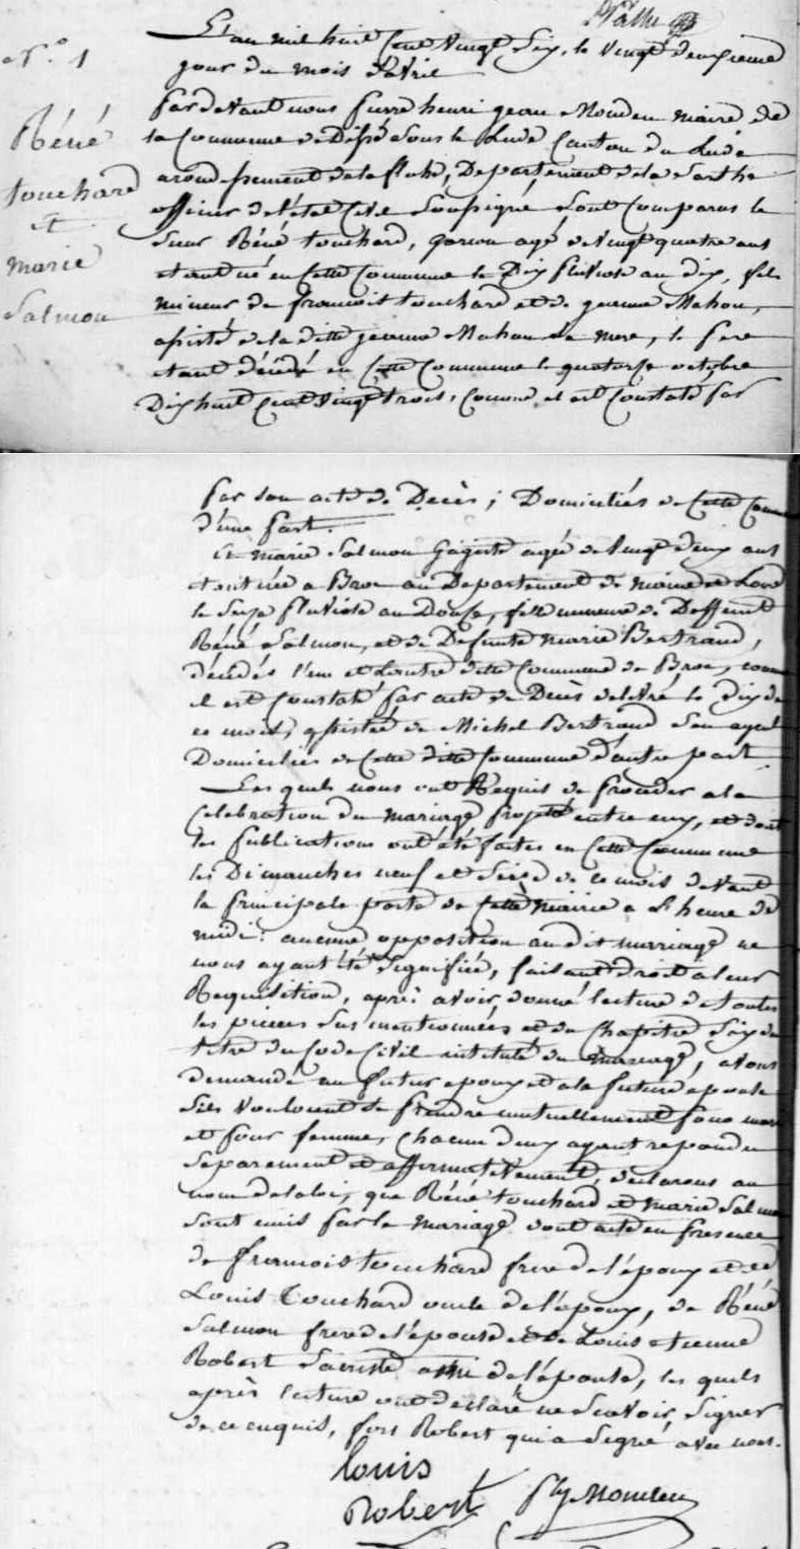 N.° 1
Réné
touchard
et
marie
Salmon
L'an mil huit Cent Vingt Six, le vingt deuxieme
jour du mois d'avril
pardevant nous pierre henri jean Mondeu maire de
la Commune de Dissé Sous le Lude Canton du Lude
arondissement de la fleche, Departement de la Sarthe
officier de l'état Civil Soussigné Sont Comparus le
Sieur Réné touchard, garcon agé de vingt quatre ans
etant né en Cette Commune le Dix pluviose an dix, fils
mineur de francois touchard et de jeanne Mahou,
assisté de la ditte jeanne Mahou sa mere, le pere
etant décédé en Cette Commune le quatorse octobre
Dix huit Cent Vingt trois, Comme il est Constaté par
par son acte de Decès; Domiciliés de Cette Com
d'une part.
Et marie Salmon Gagiste agée de vingt deux ans
etant née a Broc au Departement de maine et Loire
le Seize pluviose an Douze, fille mineure de Deffunt
Réné Salmon, et de Defunte marie Bertrand,
décédés l'un et l'autre ditte Commune de Broc, comme
il est Constaté par acte de Decès delivré le Dix de
ce mois, assistée de Michel Bertrand Son ayeul
Domiciliés de Cette ditte Commune d'autre part
Les quels nous ont Requis de proceder a la
Celebration du mariage projetté entre eux, et dont
les publications ont été faites en Cette Commune
les Dimanches neuf et Seize de ce mois devant
la principale porte de Cette mairie a L'heure de
midi: aucune opposition au dit mariage ne
nous ayant été Signifiée, faisant droit a leur
Requisition, après avoir donné lecture de toutes
les pieces Sus mentionnées et du Chapitre Six du
titre du Code Civil intitulé du mariage, avons
demandé au futur epoux et a la future epouse
S'ils veulent Se prendre mutuellement pour mari
et pour femme, Chacun d'eux ayant repondu
Separement et affirmativement, declarons au
nom de la loi, que Réné touchard et marie Salmon
Sont unis par le mariage dont acte en presence
de francois touchard frere de l'epoux et de
Louis Touchard oncle de l'epoux, de Réné
Salmon frere de l'epouse et de Louis etienne
Robert Sacriste ami de l'epouse, les quels
après lecture ont declaré ne Scavoir Signer
de ce enquis, fors Robert qui a Signé avec nous.
louis
Robert